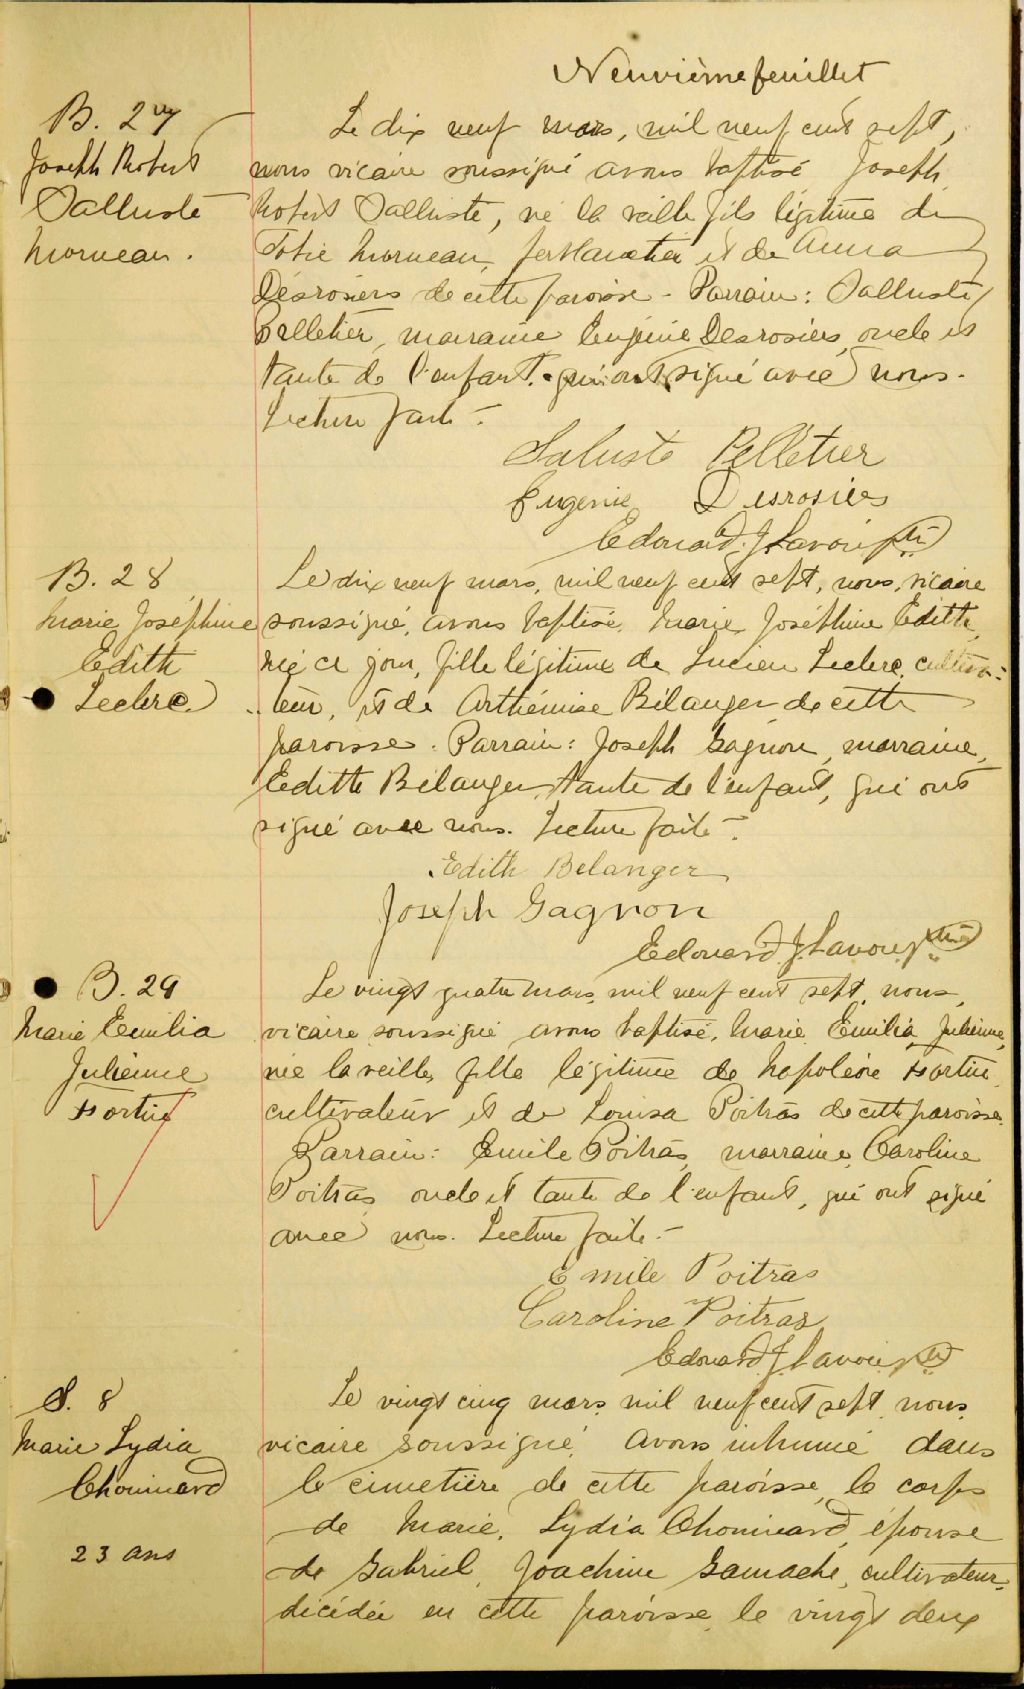 Neuvième feuillet
B. 27
Joseph Robert
Salluste
Morneau.
Le dix neuf mars, mil neuf cent sept,
nous vicaire soussigné avons baptisé Joseph
Robert Salluste, né la veille fils légitime de
Tobie Morneau, ferblantier et de Anna
Desrosiers de cette paroisse - Parrain: Salluste
Pelletier, marraine Eugénie Desrosiers, oncle et
tante de l'enfant. qui ont signé avec nous.
Lecture faite -
Saluste Pelletier
Eugenie Desrosiers
Edouard J. Lavoie ptre
B. 28
Marie Joséphine
Edith
Leclerc
Le dix neuf mars, mil neuf cent sept, nous, vicaire
soussigné, avons baptisé, Marie Joséphine Edith,
née ce jour, fille légitime de Lucien Leclerc, cultiva-
teur, et de Arthémise Bélanger de cette
paroisse. Parrain: Joseph Gagnon, marraine,
Edith Bélanger, tante de l'enfant, qui ont
signé avec nous. Lecture faite -.
Edith Belanger
Joseph Gagnon
Edouard J. Lavoie ptre
B. 29
Marie Emilia
Julienne
Fortin
Le vingt quatre mars, mil neuf cent sept, nous,
vicaire soussigné avons baptisé, Marie Emilia Julienne,
née la veille, fille légitime de Napoléon Fortin,
cultivateur et de Louisa Poitras de cette paroisse.
Parrain: Emile Poitras, marraine, Caroline
Poitras oncle et tante de l'enfant, qui ont signé
avec nous. Lecture faite.-
Emile Poitras
Caroline Poitras
Edouard J. Lavoie ptre
S. 8
Marie Lydia
Chouinard
23 ans
Le vingt cinq mars, mil neuf cent sept, nous,
vicaire soussigné, avons inhumé dans
le cimetière de cette paroisse, le corps
de Marie, Lydia Chouinard, épouse
de Gabriel, Joachim Gamache, cultivateur,
décédée en cette paroisse, le vingt deux